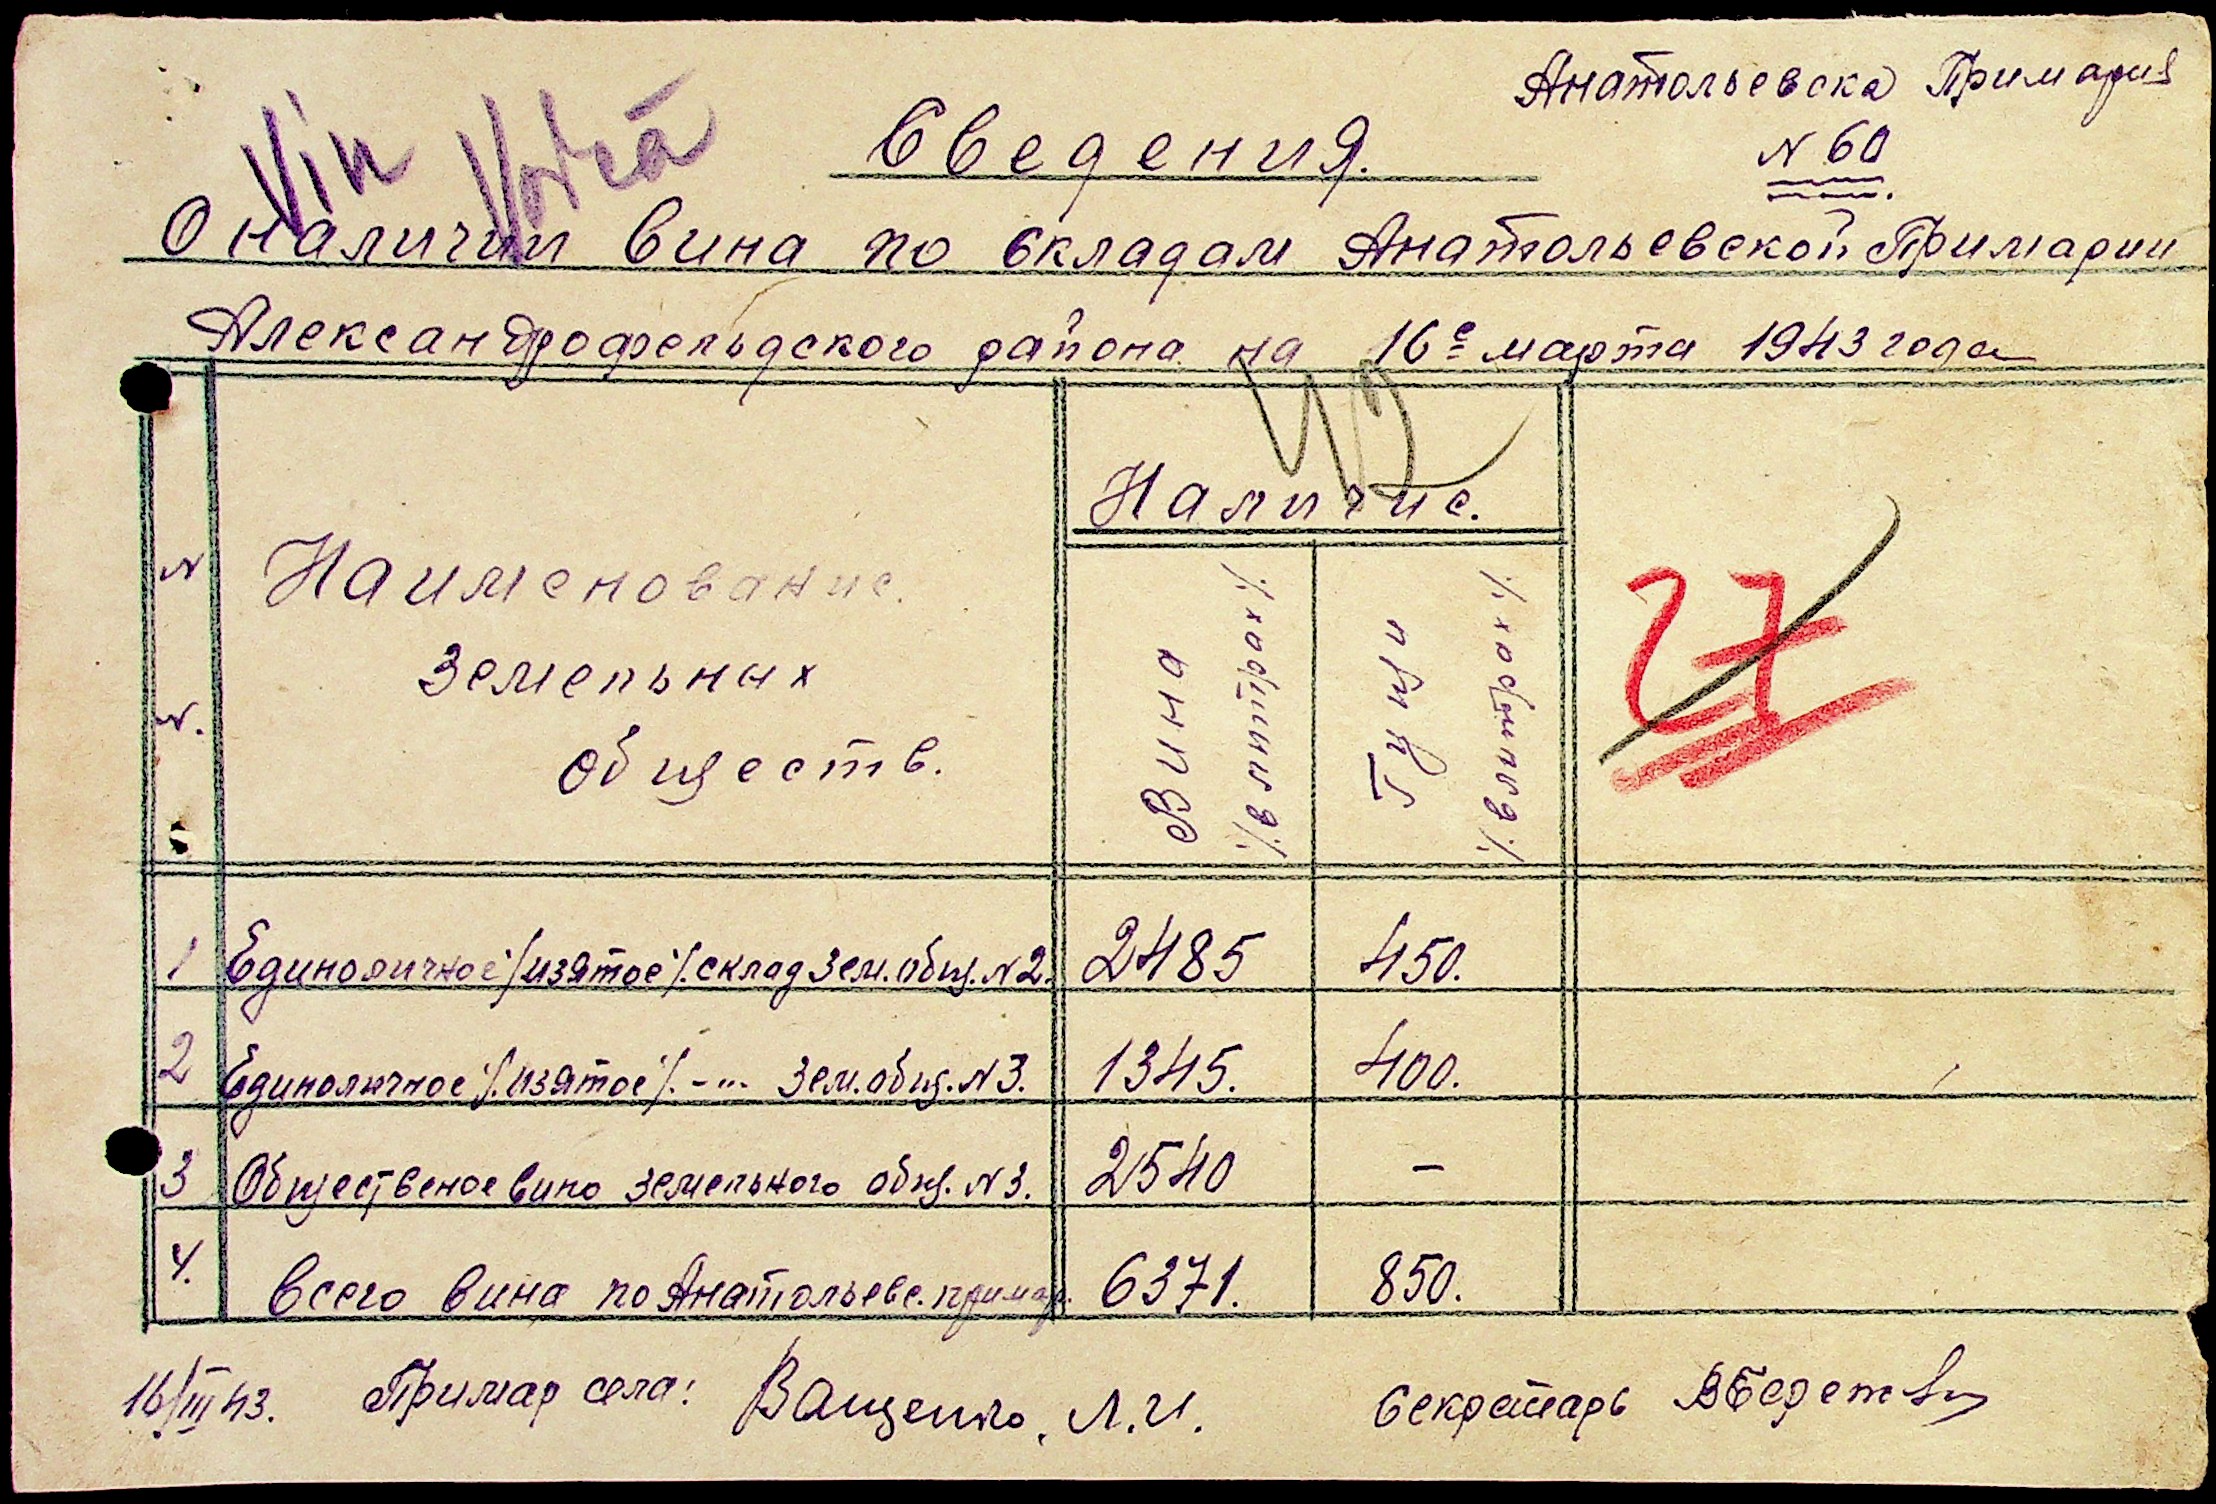 Анатольевска Примария
N 60
Vin Votcă
Сведения.
О наличии вина по складам Анатольевской Примарии
Александрофельдского района на 16е марта 1943 года
N N.
Наименование.
земельных
обществ.
Наличие.
Вина
/.в литрах./
Гущи
/.в литрах./
27
1 Единоличное /изятое/. склад зем. общ. N 2. 2485 450.
2 Единоличное /.изятое/. -"- зем. общ. N 3. 1345. 400.
3 Общественое вино земельного общ. N 3. 2540 –
4. Всего вина по Анатольевс. примар. 6371. 850.
16/III 43. Примар села: Ващенко, Л.И. Секретарь